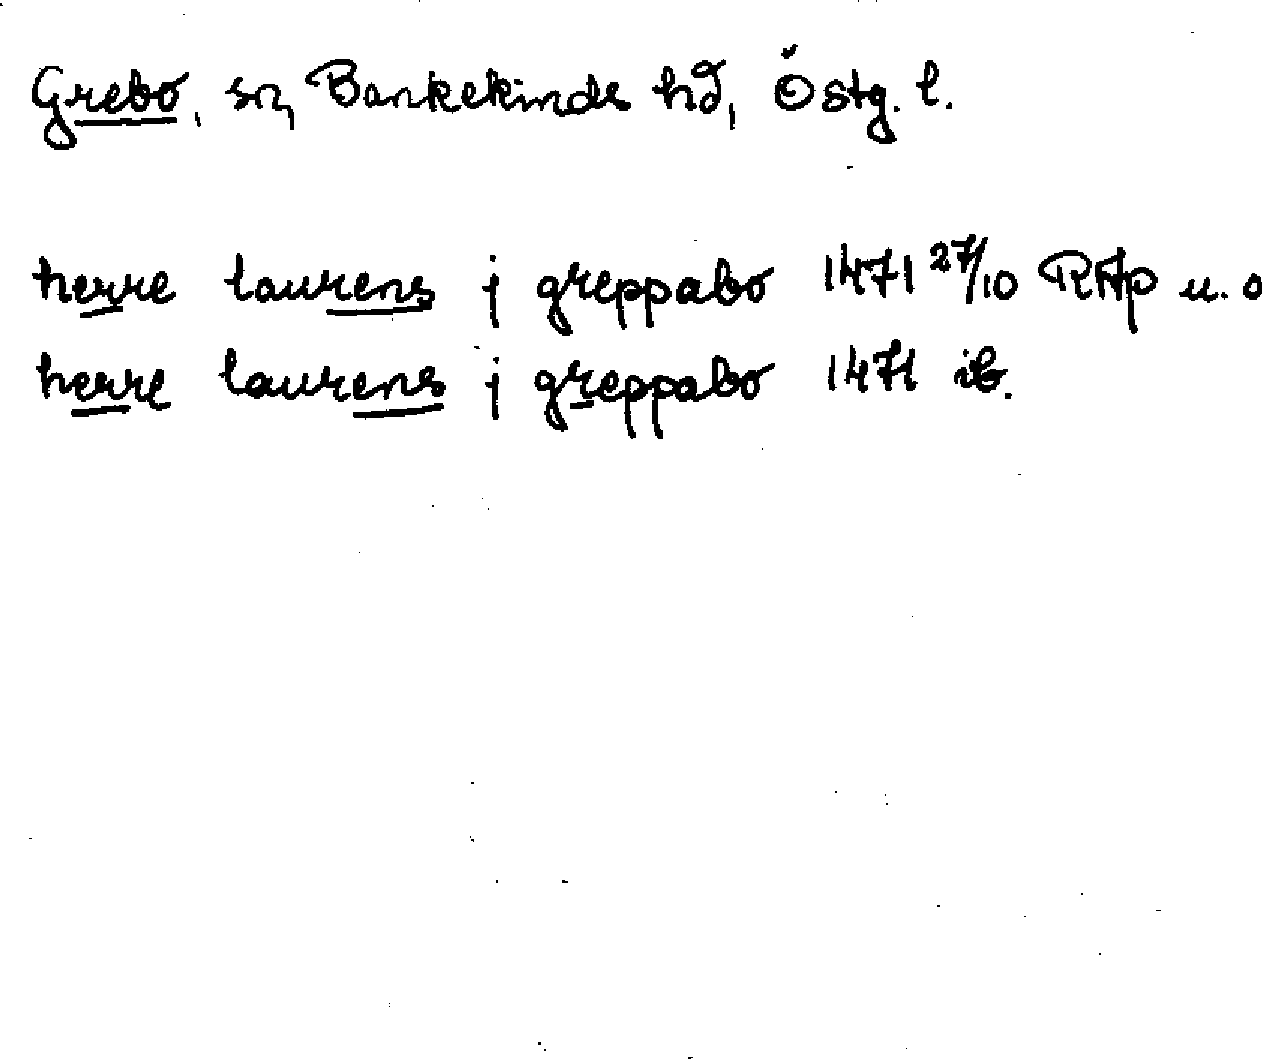 Grebo, sn, Bankekinds hd, Östg. l.
herre laurens j greppabo 1471 27/10 RAp u. o
herre laurens j greppabo 1471 ib.